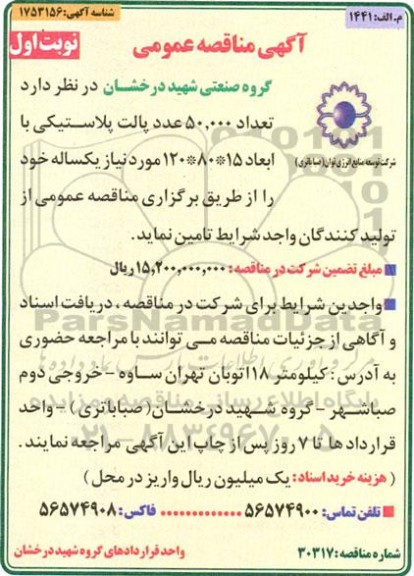 م. الف: ۱۴۴۱
شناسه آگهی: ۱۷۵۳۱۵۶
آگهی مناقصه عمومی
نوبت اول
گروه صنعتی شهید درخشان در نظر دارد
تعداد ۵۰,۰۰۰ عدد پالت پلاستیکی با
ابعاد ۱۵*۸۰*۱۲۰ مورد نیاز یکساله خود
را از طریق برگزاری مناقصه عمومی از
شرکت توسعه منابع انرژی توان (صبا باتری)
تولید کنندگان واجد شرایط تامین نماید.
مبلغ تضمین شرکت در مناقصه: ۱۵,۲۰۰,۰۰۰,۰۰۰ ریال
واجدین شرایط برای شرکت در مناقصه، دریافت اسناد
و آگاهی از جزئیات مناقصه می توانند با مراجعه حضوری
به آدرس: کیلومتر ۱۸ اتوبان تهران ساوه - خروجی دوم
صباشهر - گروه شهید درخشان (صبا باتری) - واحد
قرارداد ها تا ۷ روز پس از چاپ این آگهی مراجعه نمایند.
( هزینه خرید اسناد: یک میلیون ریال واریز در محل )
تلفن تماس: ۵۶۵۷۴۹۰۰ ............. فاکس: ۵۶۵۷۴۹۰۸
شماره مناقصه: ۳۰۳۱۷
واحد قراردادهای گروه شهید درخشان
ParsNamadData
پایگاه اطلاع رسانی مناقصه و مزایده
۰۲۱-۸۸۳۴۹۶۷۰-۵